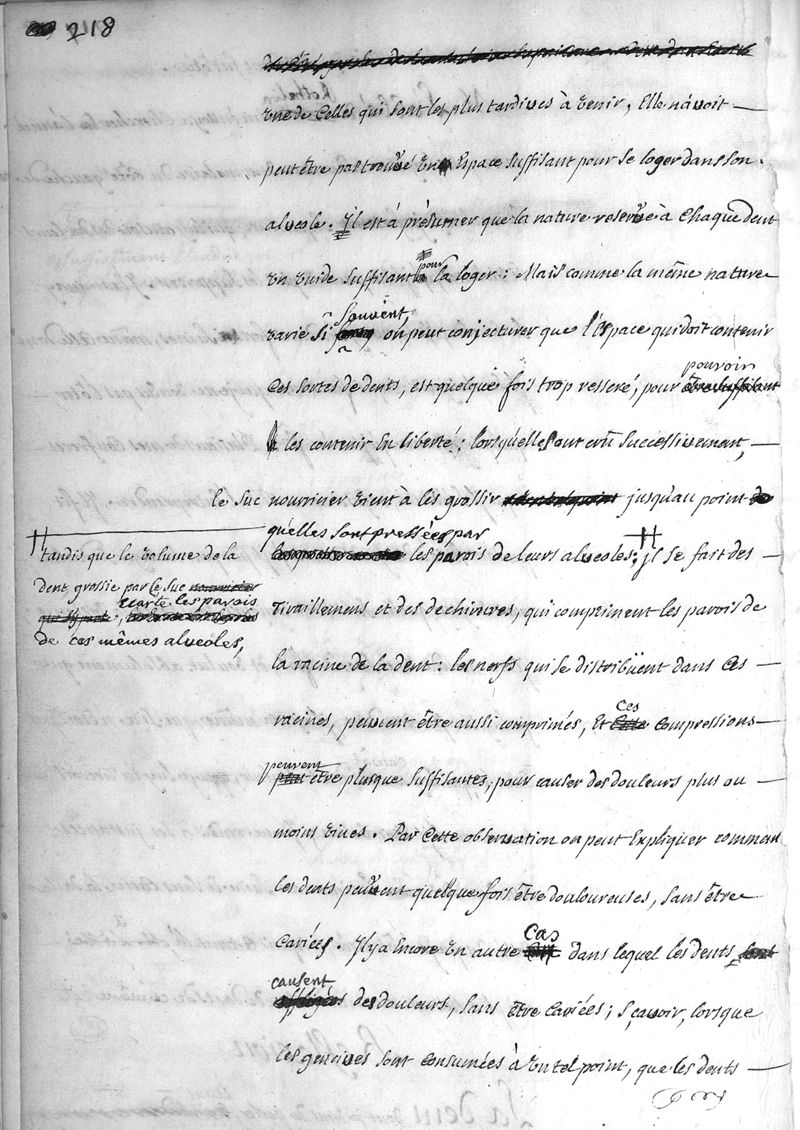 218
une de celles qui sont les plus tardives à venir, Elle n'avoit
peut être pas trouvé un Espace suffisant pour se loger dans son
alveole. Il est à présumer que la nature reserve à chaque dent
un vuide suffisant pour la loger : Mais comme la même nature
varie si souvent, on peut conjecturer que l'Espace qui doit contenir
Ces sortes de dents, est quelque fois trop resseré, pour pouvoir
les contenir En liberté ; lorsqu'elles ont crû successivement,
le suc nourricier vient à les grossir jusqu'au point
qu'elles sont pressées par les parois de leurs alveoles ; il se fait des
tandis que le volume de la
dent, grossie par ce suc
ecarte les parois
de ces mêmes alveoles,
tiraillemens et des dechirures, qui compriment les parois de
la racine de la dent : les nerfs qui se distribüent dans ces
racines, peuvent être aussi comprimés, Et Ces Compressions
peuvent être plus que suffisantes, pour causer des douleurs plus ou
moins vives. Par Cette observation on peut Expliquer comment
les dents peuvent quelque fois être douloureuses, sans être
Cariées. Il y a Encore un autre Cas dans lequel les dents
causent des douleurs, sans être Cariées ; sçavoir, lorsque
les gencives sont Consumées à un tel point, que les dents